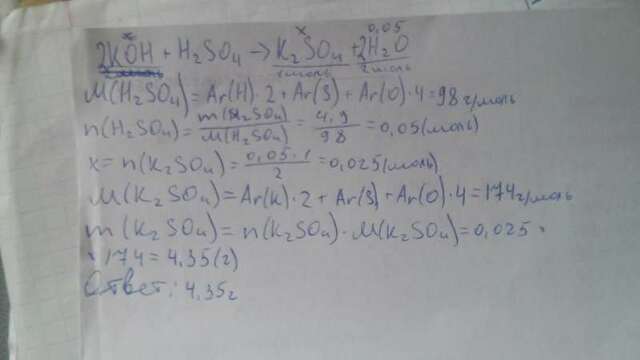 x x 0,05
2KOH + H₂SO₄ → K₂SO₄ + 2H₂O
1моль 2моль
M(H₂SO₄) = Ar(H)·2 + Ar(S) + Ar(O)·4 = 98 г/моль
n(H₂SO₄) = m(H₂SO₄)/M(H₂SO₄) = 4,9/98 = 0,05(моль)
x = n(K₂SO₄) = 0,05·1/2 = 0,025(моль)
M(K₂SO₄) = Ar(K)·2 + Ar(S) + Ar(O)·4 = 174 г/моль
m(K₂SO₄) = n(K₂SO₄)·M(K₂SO₄) = 0,025 ·
· 174 = 4,35(г)
Ответ: 4,35г